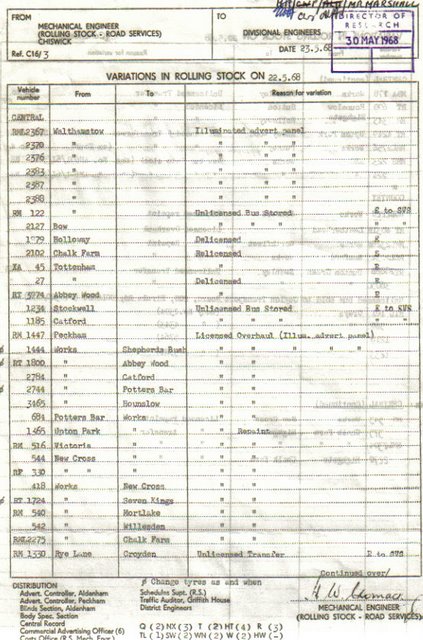 FROM MECHANICAL ENGINEER (ROLLING STOCK - ROAD SERVICES) CHISWICK
TO DIVISIONAL ENGINEERS
MR MARSHALL
DIRECTOR OF RESEARCH
30 MAY 1968
Ref. C16/3
DATE 23.5.68
VARIATIONS IN ROLLING STOCK ON 22.5.68
Vehicle number From To Reason for variation
CENTRAL
RML 2367 Walthamstow Illuminated advert panel
2370 " " " "
2376 " " " "
2383 " " " "
2387 " " " "
2388 " " " "
RM 122 " Unlicensed Bus Stored E to SVS
2127 Bow " " " "
1979 Holloway Delicensed E
2102 Chalk Farm Relicensed E
XA 45 Tottenham " E
27 " Delicensed E
RT 3774 Abbey Wood " E
1234 Stockwell Unlicensed Bus Stored E to SVS
1185 Catford " " " "
RM 1447 Peckham Licensed Overhaul (Illum. advert panel)
1444 Works Shepherds Bush " "
RT 1800 " Abbey Wood " "
2784 " Catford " "
2744 " Potters Bar " "
3465 " Hounslow " "
684 Potters Bar Works " "
1465 Upton Park " " Repaint
RM 516 Victoria " " "
544 New Cross " " "
RF 330 " " " " "
418 Works New Cross " "
RT 1724 " Seven Kings " "
RM 540 " Mortlake " "
542 " Willesden " "
RML 2275 " Chalk Farm " "
RM 1330 Rye Lane Croydon Unlicensed Transfer E to SVS
Continued over/
Ø Change tyres as and when
DISTRIBUTION
Advert. Controller, Aldenham
Advert. Controller, Peckham
Blinds Section, Aldenham
Body Spec. Section
Central Record
Commercial Advertising Officer (6)
Costs Officer (R.S. Mech. Engr.
Schedules Supt. (R.S.)
Traffic Auditor, Griffith House
District Engineers
Q (2) NX (3) T (2) HT (4) R (3)
TL (1) SW (2) WN (2) W (2) HW (-)
MECHANICAL ENGINEER
(ROLLING STOCK - ROAD SERVICES)